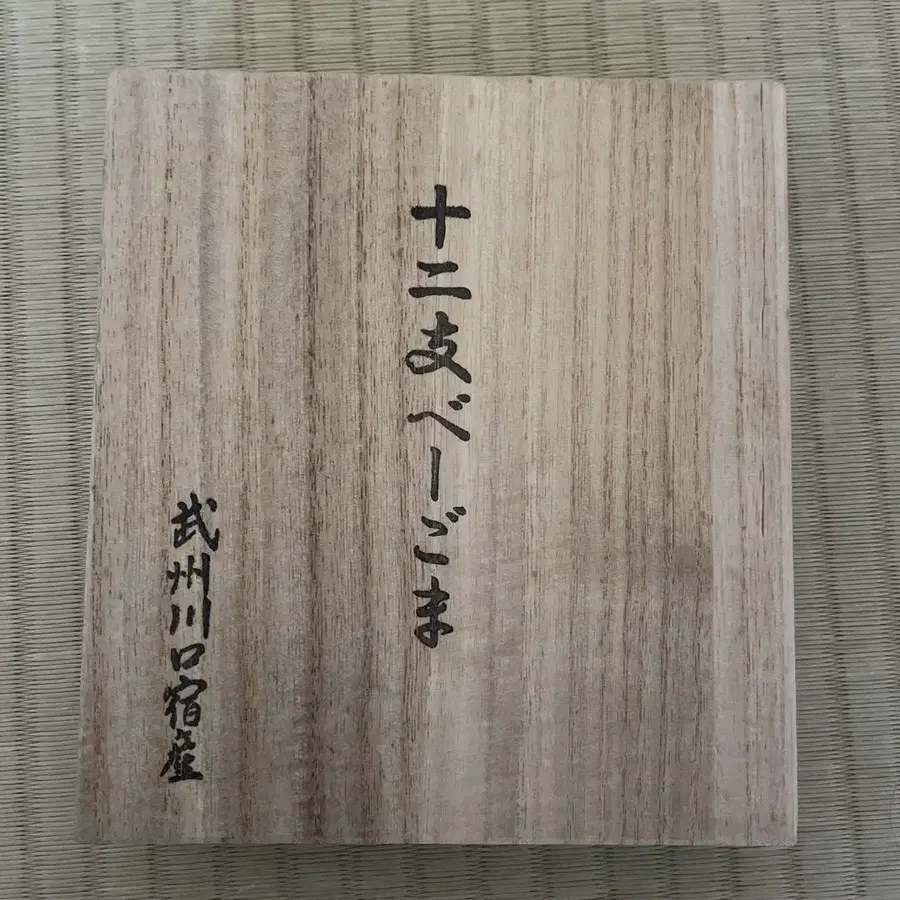 十二支べーごま
武州川口宿産